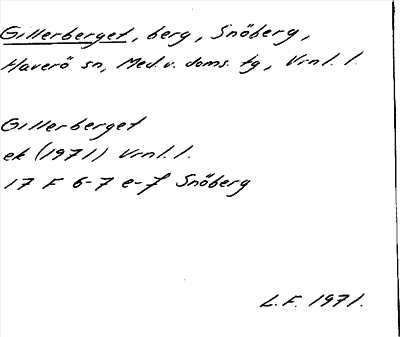 Gillerberget, berg, Snöberg,
Haverö sn, Med.v. doms. tg, Vrnl. l.
Gillerberget
ek (1971) Vrnl. l.
17 F 6-7 e-f Snöberg
L.F. 1971.